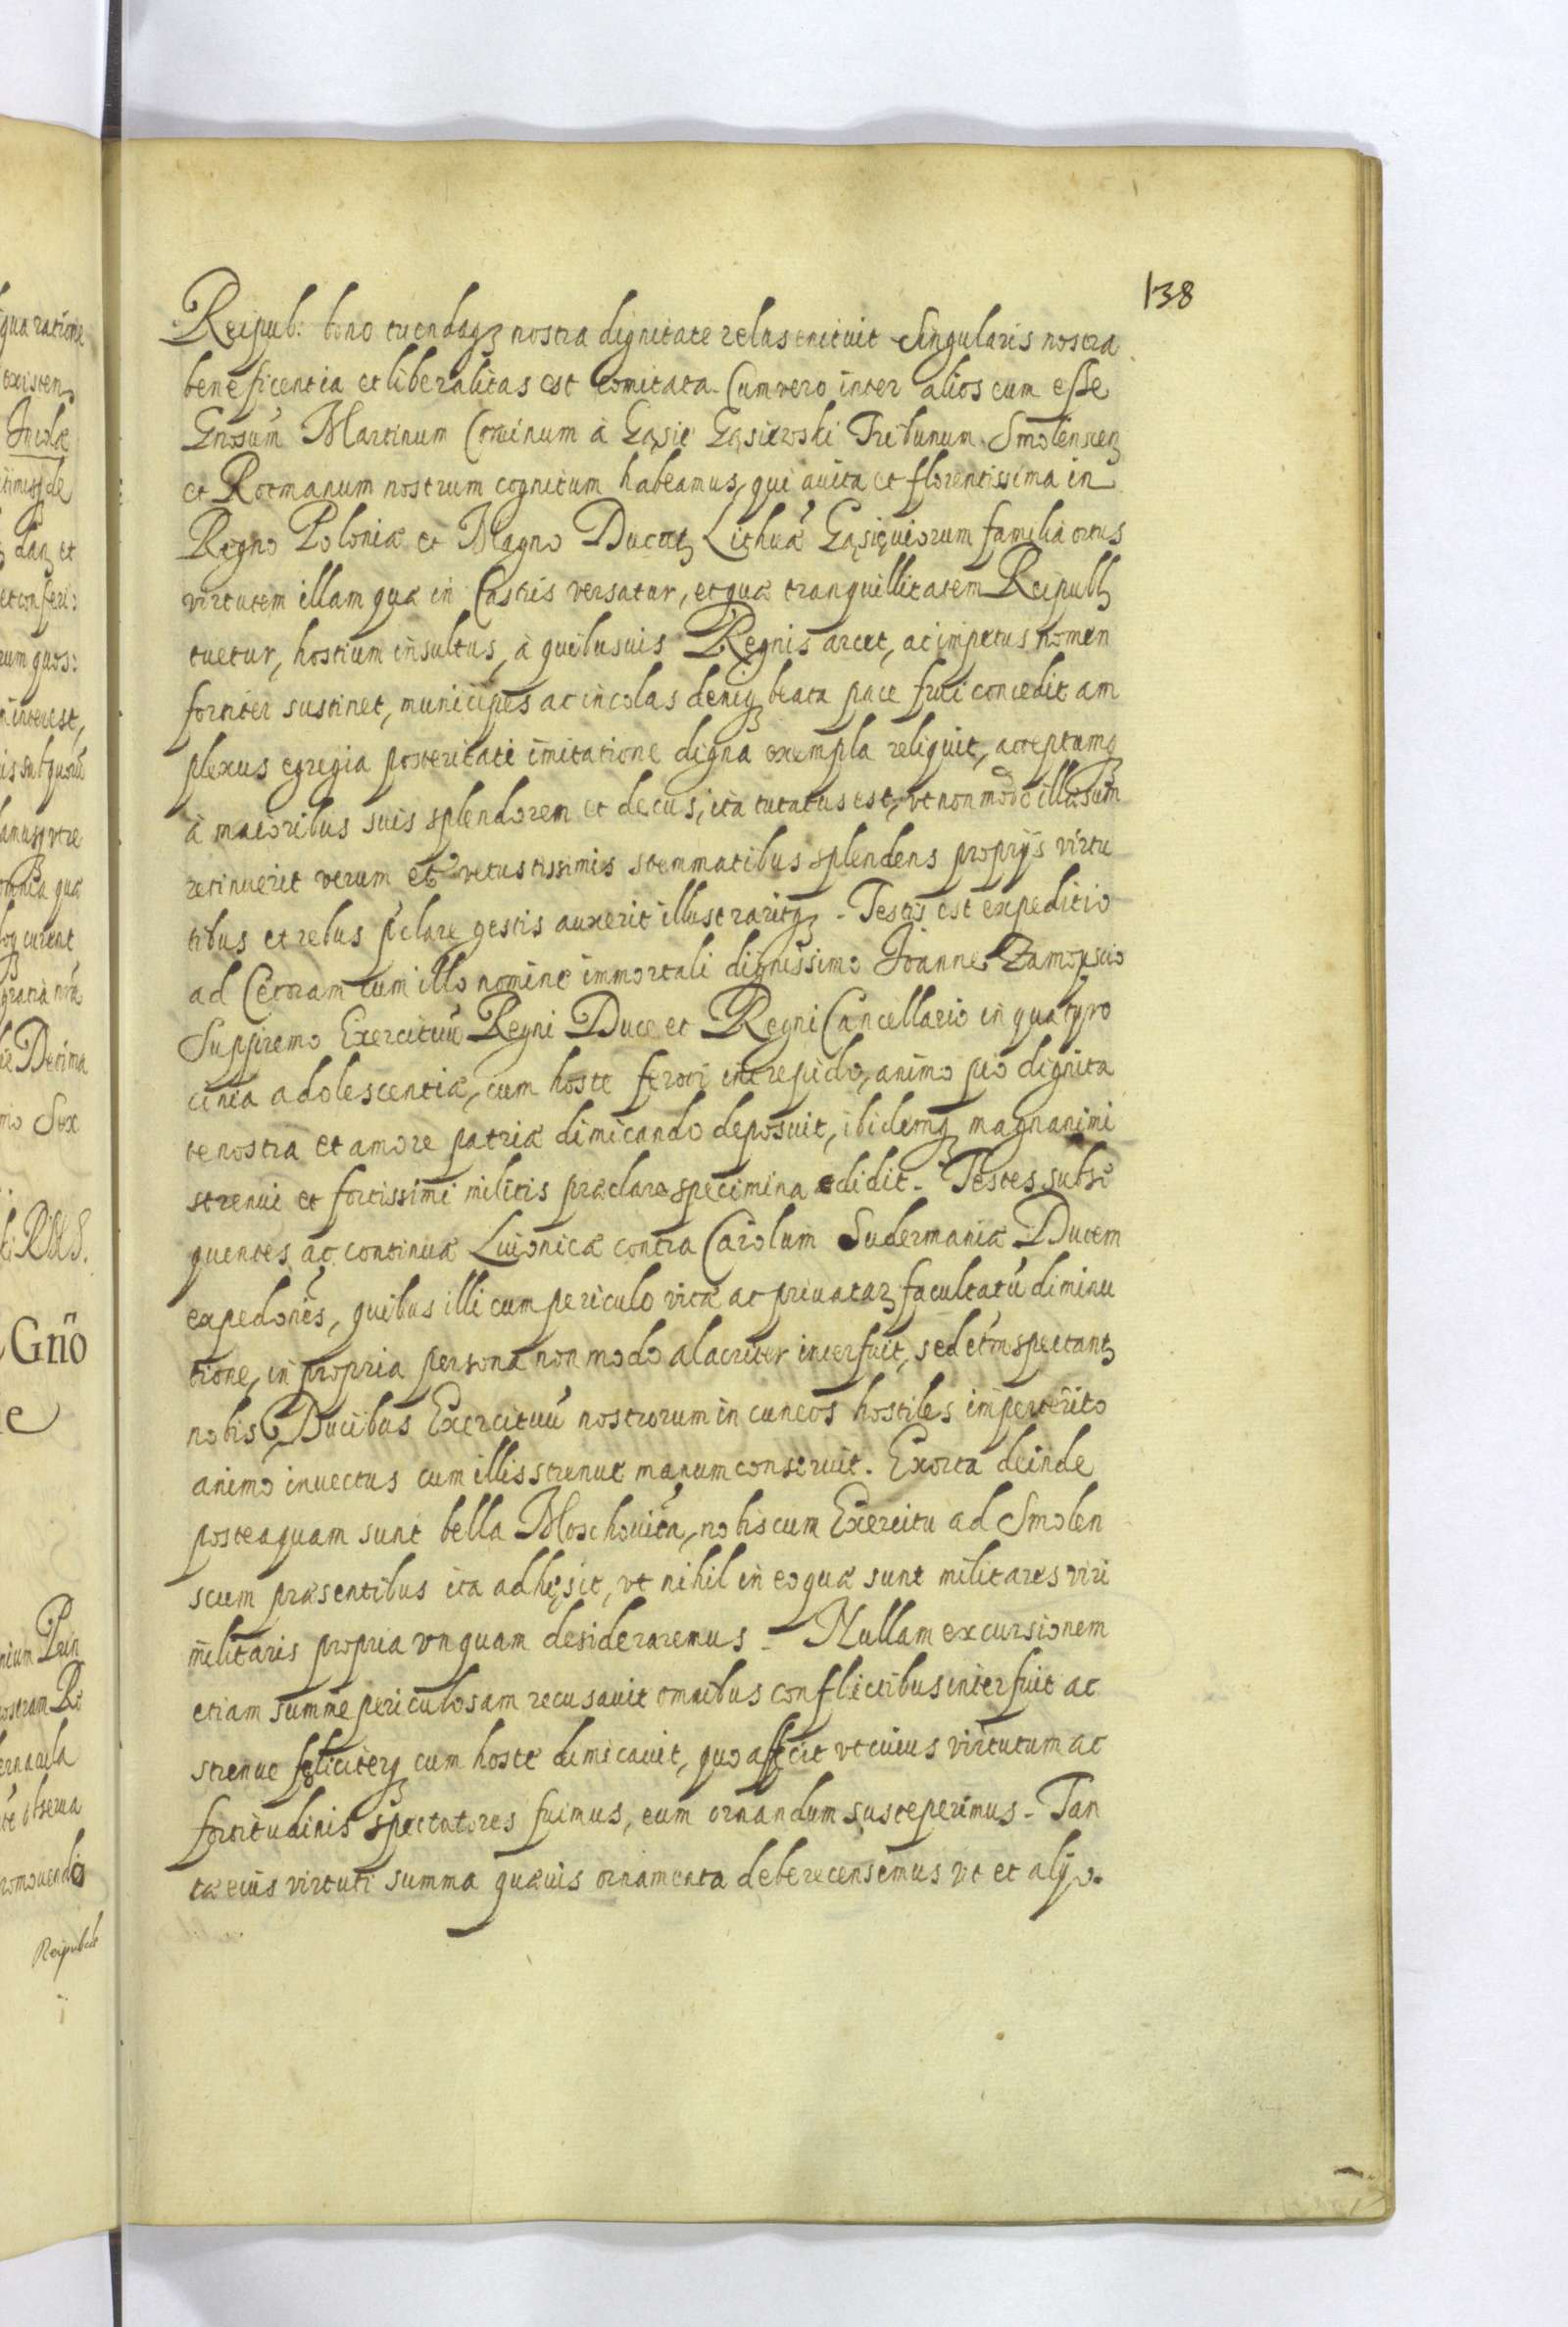 138
Reipub: bono tuendaq3 nostra dignitate zelus enituit Singularis nostra
beneficentia et liberalitas est comitata. Cum vero inter alios eum esse
Gnosum Martinum Corvinum à Gąsie Gąsiewski Tribunum Smolensceñ
et Rotmanum nostrum cognitum habeamus, qui auita et florentissima in
Regno Poloniæ et Magno Ducatu Lithuæ Gąsięuiorum familia ortus
virtutem illam quæ in Castris versatur, et quæ tranquillitatem Reipub
tuetur, hostium insultus, à quibusuis Regnis arcet, ac impetus nomen
fortiter sustinet, municipes ac incolas deniq3 beata pace frui concedit am
plexus egregia posteritati imitatione digna exempla reliquit, acceptumq3
à maioribus suis splendorem et decus, ita tutatus est, vt non modo illæsum
retinuerit verum et vetustissimis stemmatibus splendens proprijs virtu
tibus et rebus pclare gestis auxerit illustraritq3. Testis est expeditio
ad Cecoram cum illo nomine immortali dignissimo Joanne Zamoyscio
Suppremo Exercituũ Regni Duce et Regni Cancellario in qua tyro
cinia adolescentiæ, cum hoste feroci intrepido, animo pio dignita
te nostra et amore patriæ dimicando deposuit, ibidemq3 magnanimi
strenui et fortissimi militis præclara specimina edidit. Testes subse
quentes ac continuæ Liuonicæ contra Carolum Sudermaniæ Ducem
expedones, quibus illi cum periculo vitæ ac priuatar3 facultatũ diminu
tione, in propria persona non modo alacriter interfuit, sed etm spectant3
nobis Ducibus Exercituũ nostrorum in cuneos hostiles imperterito
animo inuectus cum illis strenue manum conseruit. Exorta deinde
posteaquam sunt bella Moschouita, nobiscum Exercitu ad Smolen
scum præsentibus ita adhęsit, vt nihil in eo quæ sunt militares viri
militaris propria vnquam desideraremus. Nullam excursionem
etiam summe periculosam recusauit omnibus conflictibus interfuit ac
strenue feliciterq3 cum hoste dimicauit, quo affecit vt cuius virtutum ac
fortitudinis spectatores fuimus, eum ornandum susceperimus. Tan
tæ eius virtuti summa quæuis ornamenta debere censemus vt et alijs.